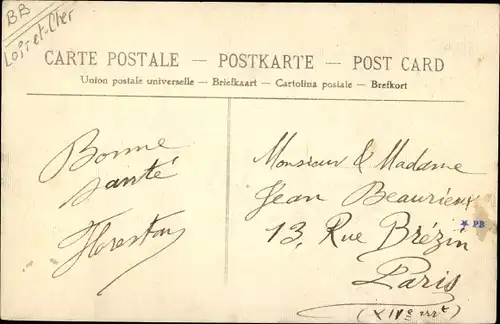 BB
Loir-et-Cher
CARTE POSTALE — POSTKARTE — POST CARD
Union postale universelle — Briefkaart — Cartolina postale — Brefkort
Bonne
santé
Florestan
Monsieur & Madame
Jean Beaurieux
13, Rue Brézin
PB
Paris
(XIVe arrt)